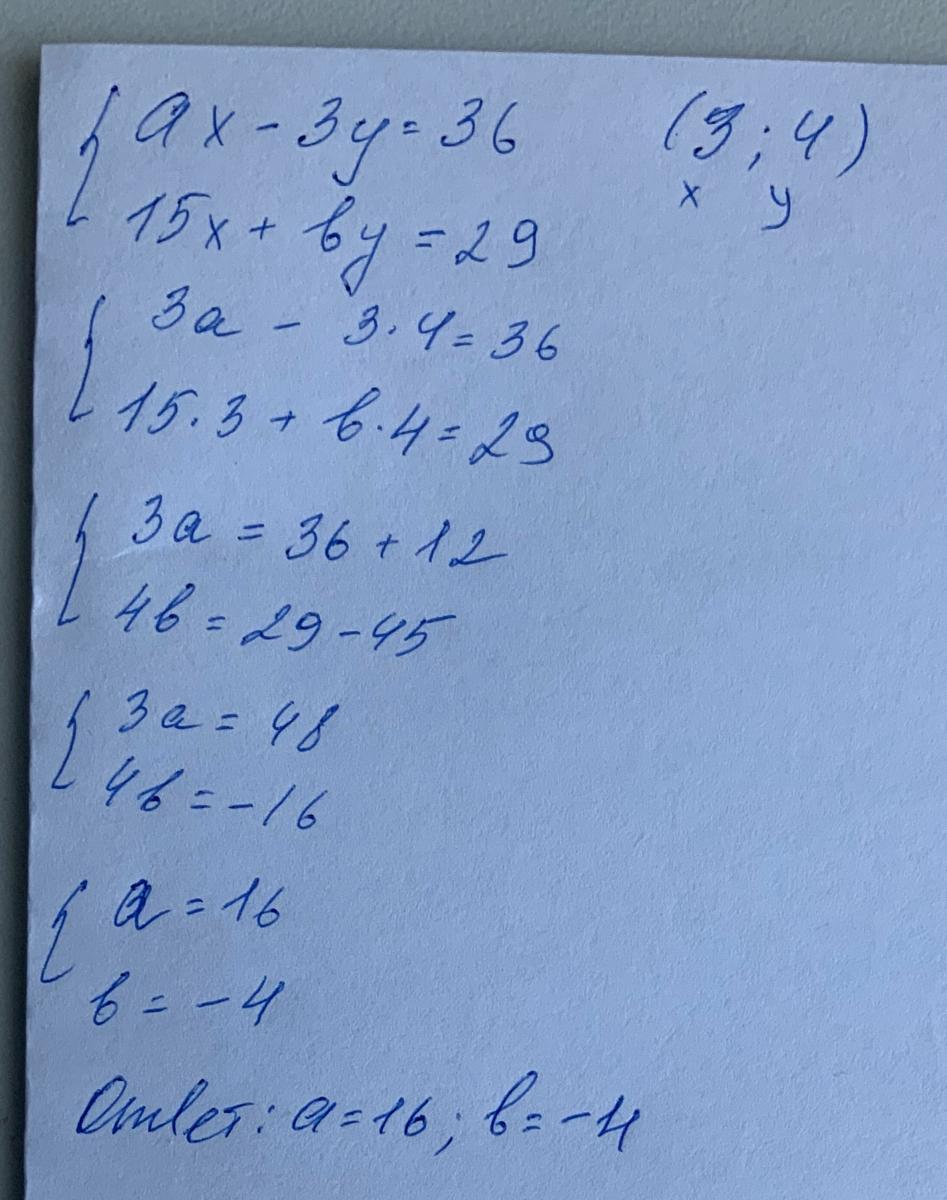 { ax - 3y = 36 (3; 4)
x y
15x + by = 29
{ 3a - 3·4 = 36
15·3 + b·4 = 29
{ 3a = 36 + 12
4b = 29 - 45
{ 3a = 48
4b = -16
{ a = 16
b = -4
Ответ: a = 16; b = -4